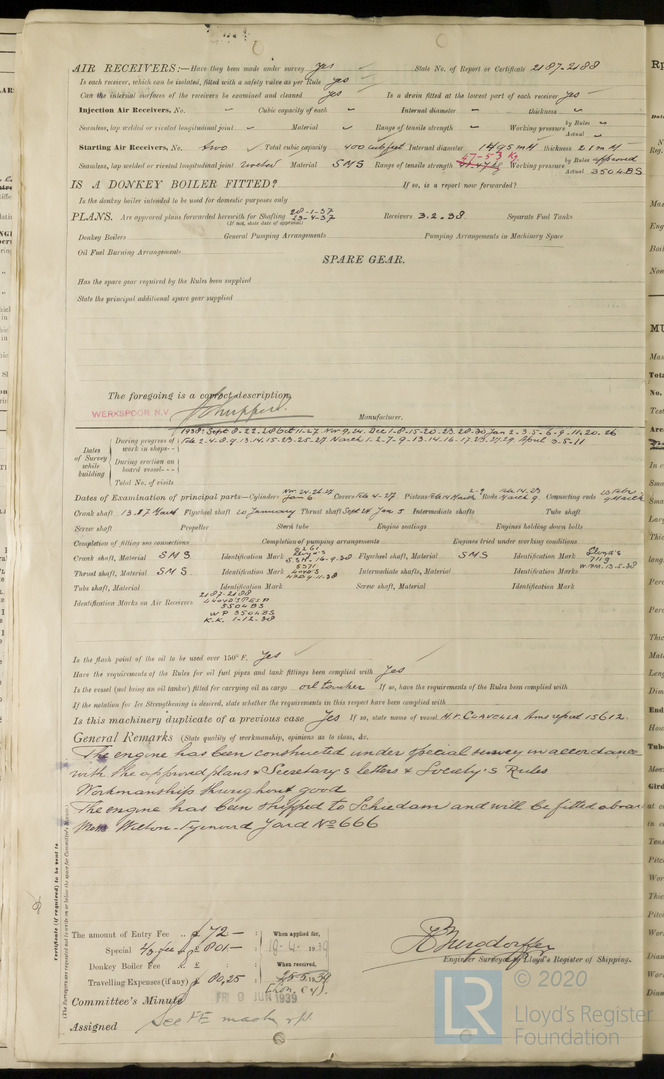 AIR RECEIVERS:—Have they been made under survey yes State No. of Report or Certificate 2187-2188
Is each receiver, which can be isolated, fitted with a safety valve as per Rule yes
Can the internal surfaces of the receivers be examined and cleaned yes Is a drain fitted at the lowest part of each receiver yes
Injection Air Receivers, No. Cubic capacity of each Internal diameter thickness
Seamless, lap welded or riveted longitudinal joint Material Range of tensile strength Working pressure by Rules Actual
Starting Air Receivers, No. two Total cubic capacity 400 cubfeet Internal diameter 1495 mm thickness 21 mm
Seamless, lap welded or riveted longitudinal joint welded Material SMS Range of tensile strength 47-53 Kg Working pressure by Rules approved Actual 350 LBS
IS A DONKEY BOILER FITTED? If so, is a report now forwarded?
Is the donkey boiler intended to be used for domestic purposes only
PLANS. Are approved plans forwarded herewith for Shafting 28-1-37 23-4-37 Receivers 3.2.38 Separate Fuel Tanks
(If not, state date of approval)
Donkey Boilers General Pumping Arrangements Pumping Arrangements in Machinery Space
Oil Fuel Burning Arrangements
SPARE GEAR.
Has the spare gear required by the Rules been supplied
State the principal additional spare gear supplied
The foregoing is a correct description,
WERKSPOOR N.V. Manufacturer.
Dates of Survey while building
During progress of work in shops-- 1938: Sept 8.22.28 Oct 11-27 Nov 9.24. Dec 1-8-15-20-23.28.30 Jan 2.3.5-6-9-11.20.26
Feb 2-4-8.9.13.14.15.23.25.27. March 1.2.7.9-13.14.16-17.23.27.29 April 3.5.11
During erection on board vessel---
Total No. of visits
Dates of Examination of principal parts—Cylinders Nov. 24.26.27 Jan 6 Covers Feb 4-27. Pistons Feb 14 March 2-9 Rods Feb. 14.23 March 9. Connecting rods
Crank shaft 13.27 March Flywheel shaft 20 January Thrust shaft Sept 24 Jan 5 Intermediate shafts Tube shaft
Screw shaft Propeller Stern tube Engine seatings Engines holding down bolts
Completion of fitting sea connections Completion of pumping arrangements Engines tried under working conditions
Crank shaft, Material SMS Identification Mark Flywheel shaft, Material SMS Identification Mark Lloyd's 7119 W.PM.13-5.38
Thrust shaft, Material SMS Identification Mark 5371 Lloyd's Intermediate shafts, Material Identification Marks
Tube shaft, Material Identification Mark Screw shaft, Material Identification Mark
Identification Marks on Air Receivers 2187-2188
LLOYD'S TEST
550 LBS
W P 350 LBS
K.K. 1-12-38
Is the flash point of the oil to be used over 150° F. Yes
Have the requirements of the Rules for oil fuel pipes and tank fittings been complied with Yes
Is the vessel (not being an oil tanker) fitted for carrying oil as cargo oil tanker If so, have the requirements of the Rules been complied with
If the notation for Ice Strengthening is desired, state whether the requirements in this respect have been complied with
Is this machinery duplicate of a previous case Yes If so, state name of vessel M.V. CLAVELLA Ams report 15612.
General Remarks (State quality of workmanship, opinions as to class, &c.
The engine has been constructed under special survey in accordance
with the approved plans & Secretary's letters & Society's Rules
Workmanship throughout good
The engine has been shipped to Schiedam and will be fitted aboard
Wilton-Fijenoord Yard No 666
Certificate (if required) to be sent to
(The Surveyors are requested not to write on or below the space for Committee's Minute.)
The amount of Entry Fee .. £ 72— When applied for,
Special 4/5 fee .. £ 801— 19-4-1939
Donkey Boiler Fee .. £ : When received,
Travelling Expenses (if any) £ 80,25
Engineer Surveyor to Lloyd's Register of Shipping.
Committee's Minute FRI 9 JUN 1939
Assigned See FE mach rpt.
© 2020
LR
Lloyd's Register
Foundation